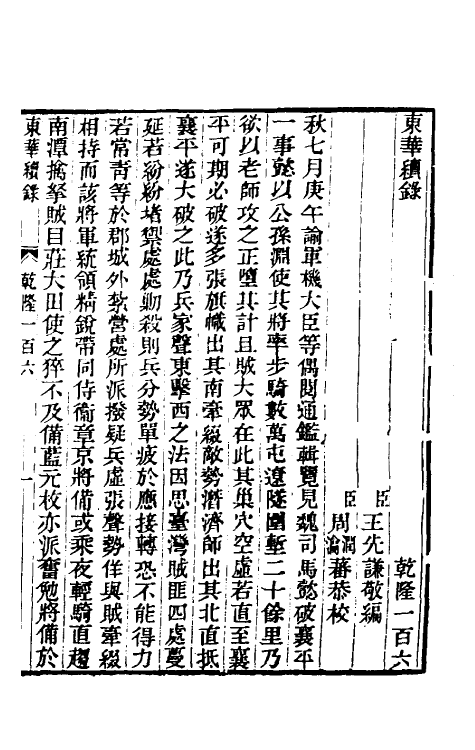 東華續錄
乾隆一百六
臣王先謙敬編
臣周潤蕃周瀹蕃恭校
秋七月庚午諭軍機大臣等偶閱通鑑輯覽見魏司馬懿破襄平
一事懿以公孫淵使其將率步騎數萬屯遼隧圍塹二十餘里乃
欲以老師攻之正墮其計且賊大眾在此其巢穴空虛若直至襄
平可期必破遂多張旗幟出其南牽綴敵勢潛濟師出其北直抵
襄平遂大破之此乃兵家聲東擊西之法因思臺灣賊匪四處蔓
延若紛紛堵禦處處勦殺則兵分勢單疲於應接轉恐不能得力
若常青等於郡城外紮營處所派撥疑兵虛張聲勢佯與賊牽綴
相持而該將軍統領精銳帶同侍衛章京將備或乘夜輕騎直趨
南潭擒拏賊目莊大田使之猝不及備藍元枚亦派奮勉將備於
東華續錄 乾隆一百六 一